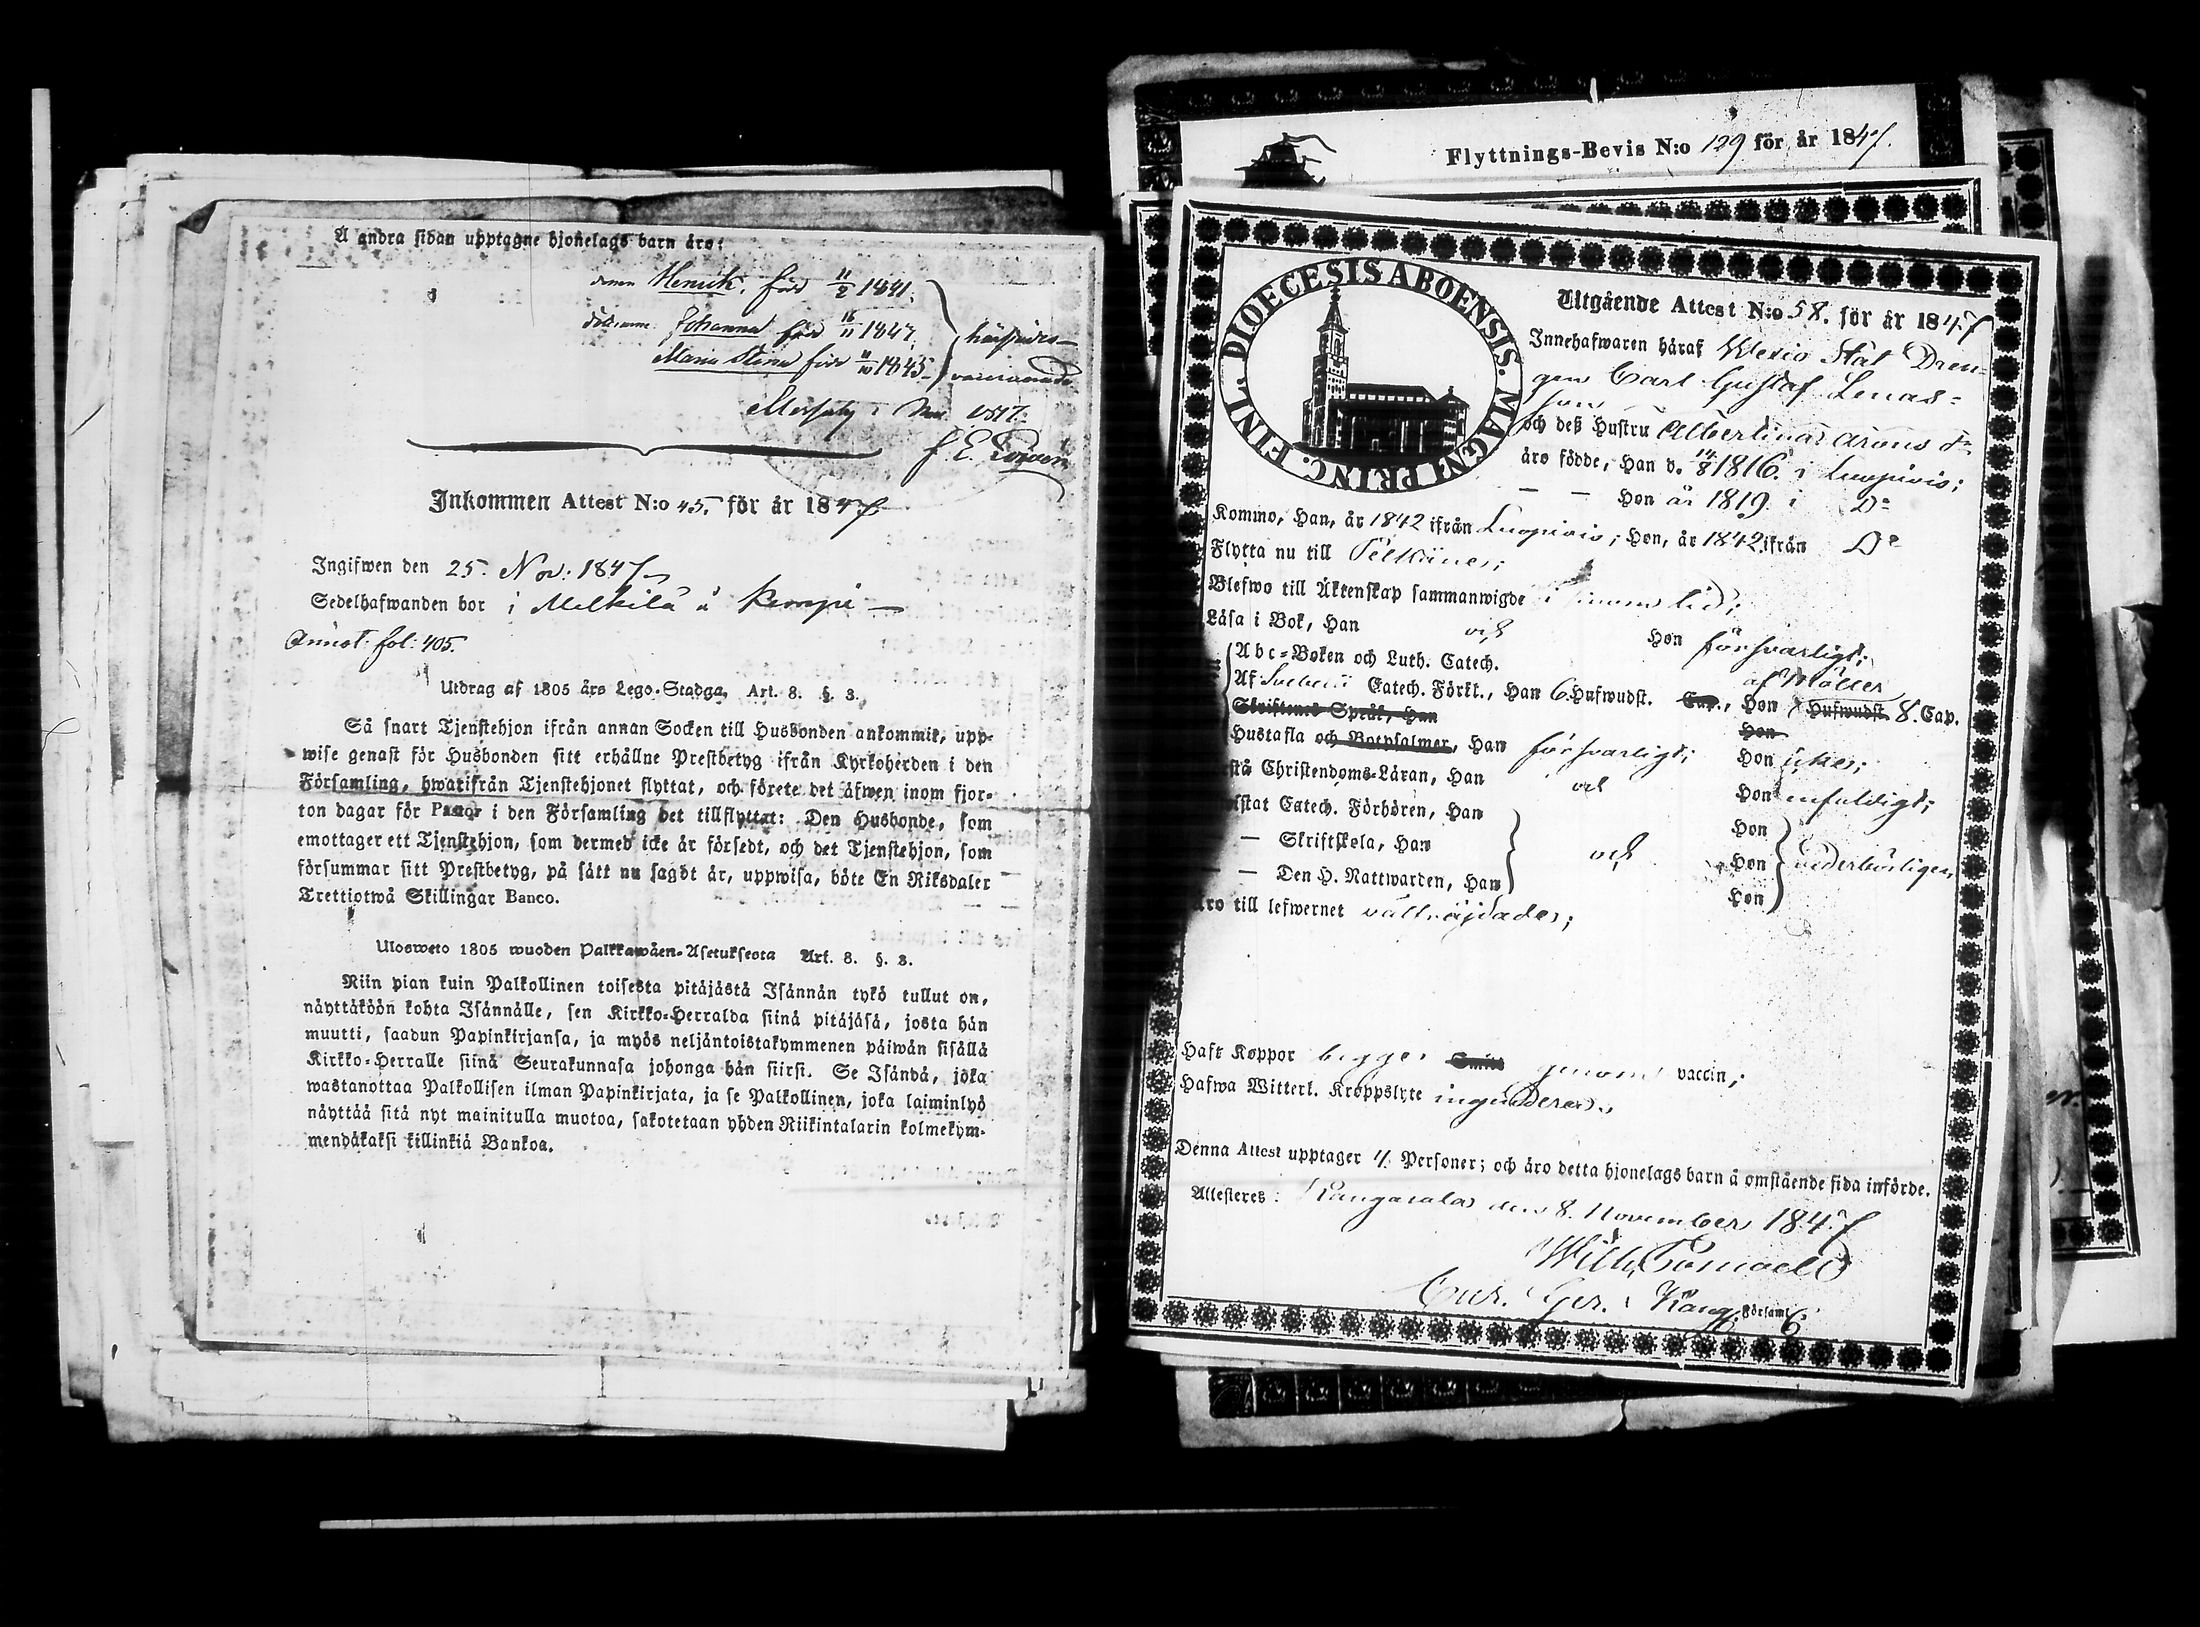 Å andra sidan upptagne hjonelags barn äro:
sonen Henrik, född 11/2 1841.
döttrarne Johanna född 16/11 184
Maria Stina född 11/10 1845
härstädes
varande
f. E.
Inkommen Attest N:o 45. för år 1847
Ingifwen den 25. Nov: 1847
Sedelhafwanden bor i Mälkilä å Kempi —
Annot: fol: 405.
Utdrag af 1805 års Lego-Stadga, Art. 8. §. 3.
Så snart Tjenstehjon ifrån annan Socken till Husbonden ankommit, upp-
wise genast för Husbonden sitt erhållne Prestbetyg ifrån Kyrkoherden i den
Församling, hwarifrån Tjenstehjonet flyttat, och förete det äfwen inom fjor-
ton dagar för Pastor i den Församling det tillflyttat: Den Husbonde, som
emottager ett Tjenstehjon, som dermed icke är försedt, och det Tjenstehjon, som
försummar sitt Prestbetyg, på sätt nu sagdt är, uppwisa, böte En Riksdaler
Trettiotwå Skillingar Banco.
Ulosweto 1805 wuoden Palkkawäen-Asetuksesta Art. 8. §. 3.
Niin pian kuin Palkollinen toisesta pitäjästä Isännän tykö tullut on,
näyttäköön kohta Isännälle, sen Kirkko-Herralda siinä pitäjäsä, josta hän
muutti, saadun Papinkirjansa, ja myös neljäntoistakymmenen päiwän sisällä
Kirkko-Herralle siinä Seurakunnasa johonga hän siirsi. Se Isändä, joka
wastanottaa Palkollisen ilman Papinkirjata, ja se Palkollinen, joka laiminlyö
näyttää sitä nyt mainitulla muotoa, sakotetaan yhden Riikintalarin kolmekym-
mendäkaksi killinkiä Bankoa.
Flyttnings-Bevis N:o 129 för år 1847.
DIOECESIS ABOENSIS. MAGNI PRINC. FINL.
Utgående Attest N:o 58. för år 1847
Innehafwaren häraf Wexio Stat Dren-
gen Carl Gustaf Lenas-
son
och deß Hustru Albertina Arons d:r
äro födde, Han d. 14/8 1816. i Luopiois;
— — Hon år 1819. i D:o
Komno, Han, år 1842 ifrån Luopiois; Hon, år 1842 ifrån D:o
Flytta nu till Pelkäne;
Blefwo till Äktenskap sammanwigde i sinom tid;
Läsa i Bok, Han och Hon försvarligt;
Abc-Boken och Luth. Catech.
Af Svebelii Catech. Förkl., Han 6. Hufwudst. Cap., Hon af Möller Hufwudst. 8. Cap.
Skriftenes Språk, Han Hon
Hustafla och Botpsalmer, Han försvarligt; Hon icke;
stå Christendoms-Läran, Han och Hon enfaldigt;
istat Catech. Förhören, Han Hon
— Skriftskola, Han och Hon vederbörligen
— — Den H. Nattwarden, Han Hon
Äro till lefwernet välfrejdade;
Haft Koppor begge genom vaccin;
Hafwa Witterl. Kroppslyte ingendera.
Denna Attest upptager 4. Personer; och äro detta hjonelags barn å omstående sida införde.
Attesteres: Kangasala den 8. November 1847
Församl